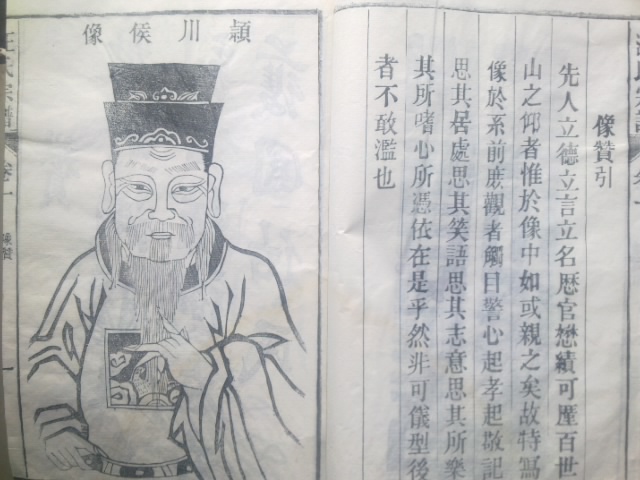 像贊引
先人立德立言立名歴官懋績可壓百世
山之仰者惟於像中如或親之矣故特寫
像於系前庶觀者觸目警心起孝起敬記
思其居處思其笑語思其志意思其所樂
其所嗜心所憑依在是乎然非可儀型後
者不敢濫也
潁川侯像
汪氏宗譜 卷一 像贊 一